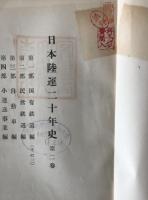 日本陸運二十年史 第一巻
第一部 国有鉄道編
第二部 民営鉄道編
第三部 自動車編
第四部 小運送事業編